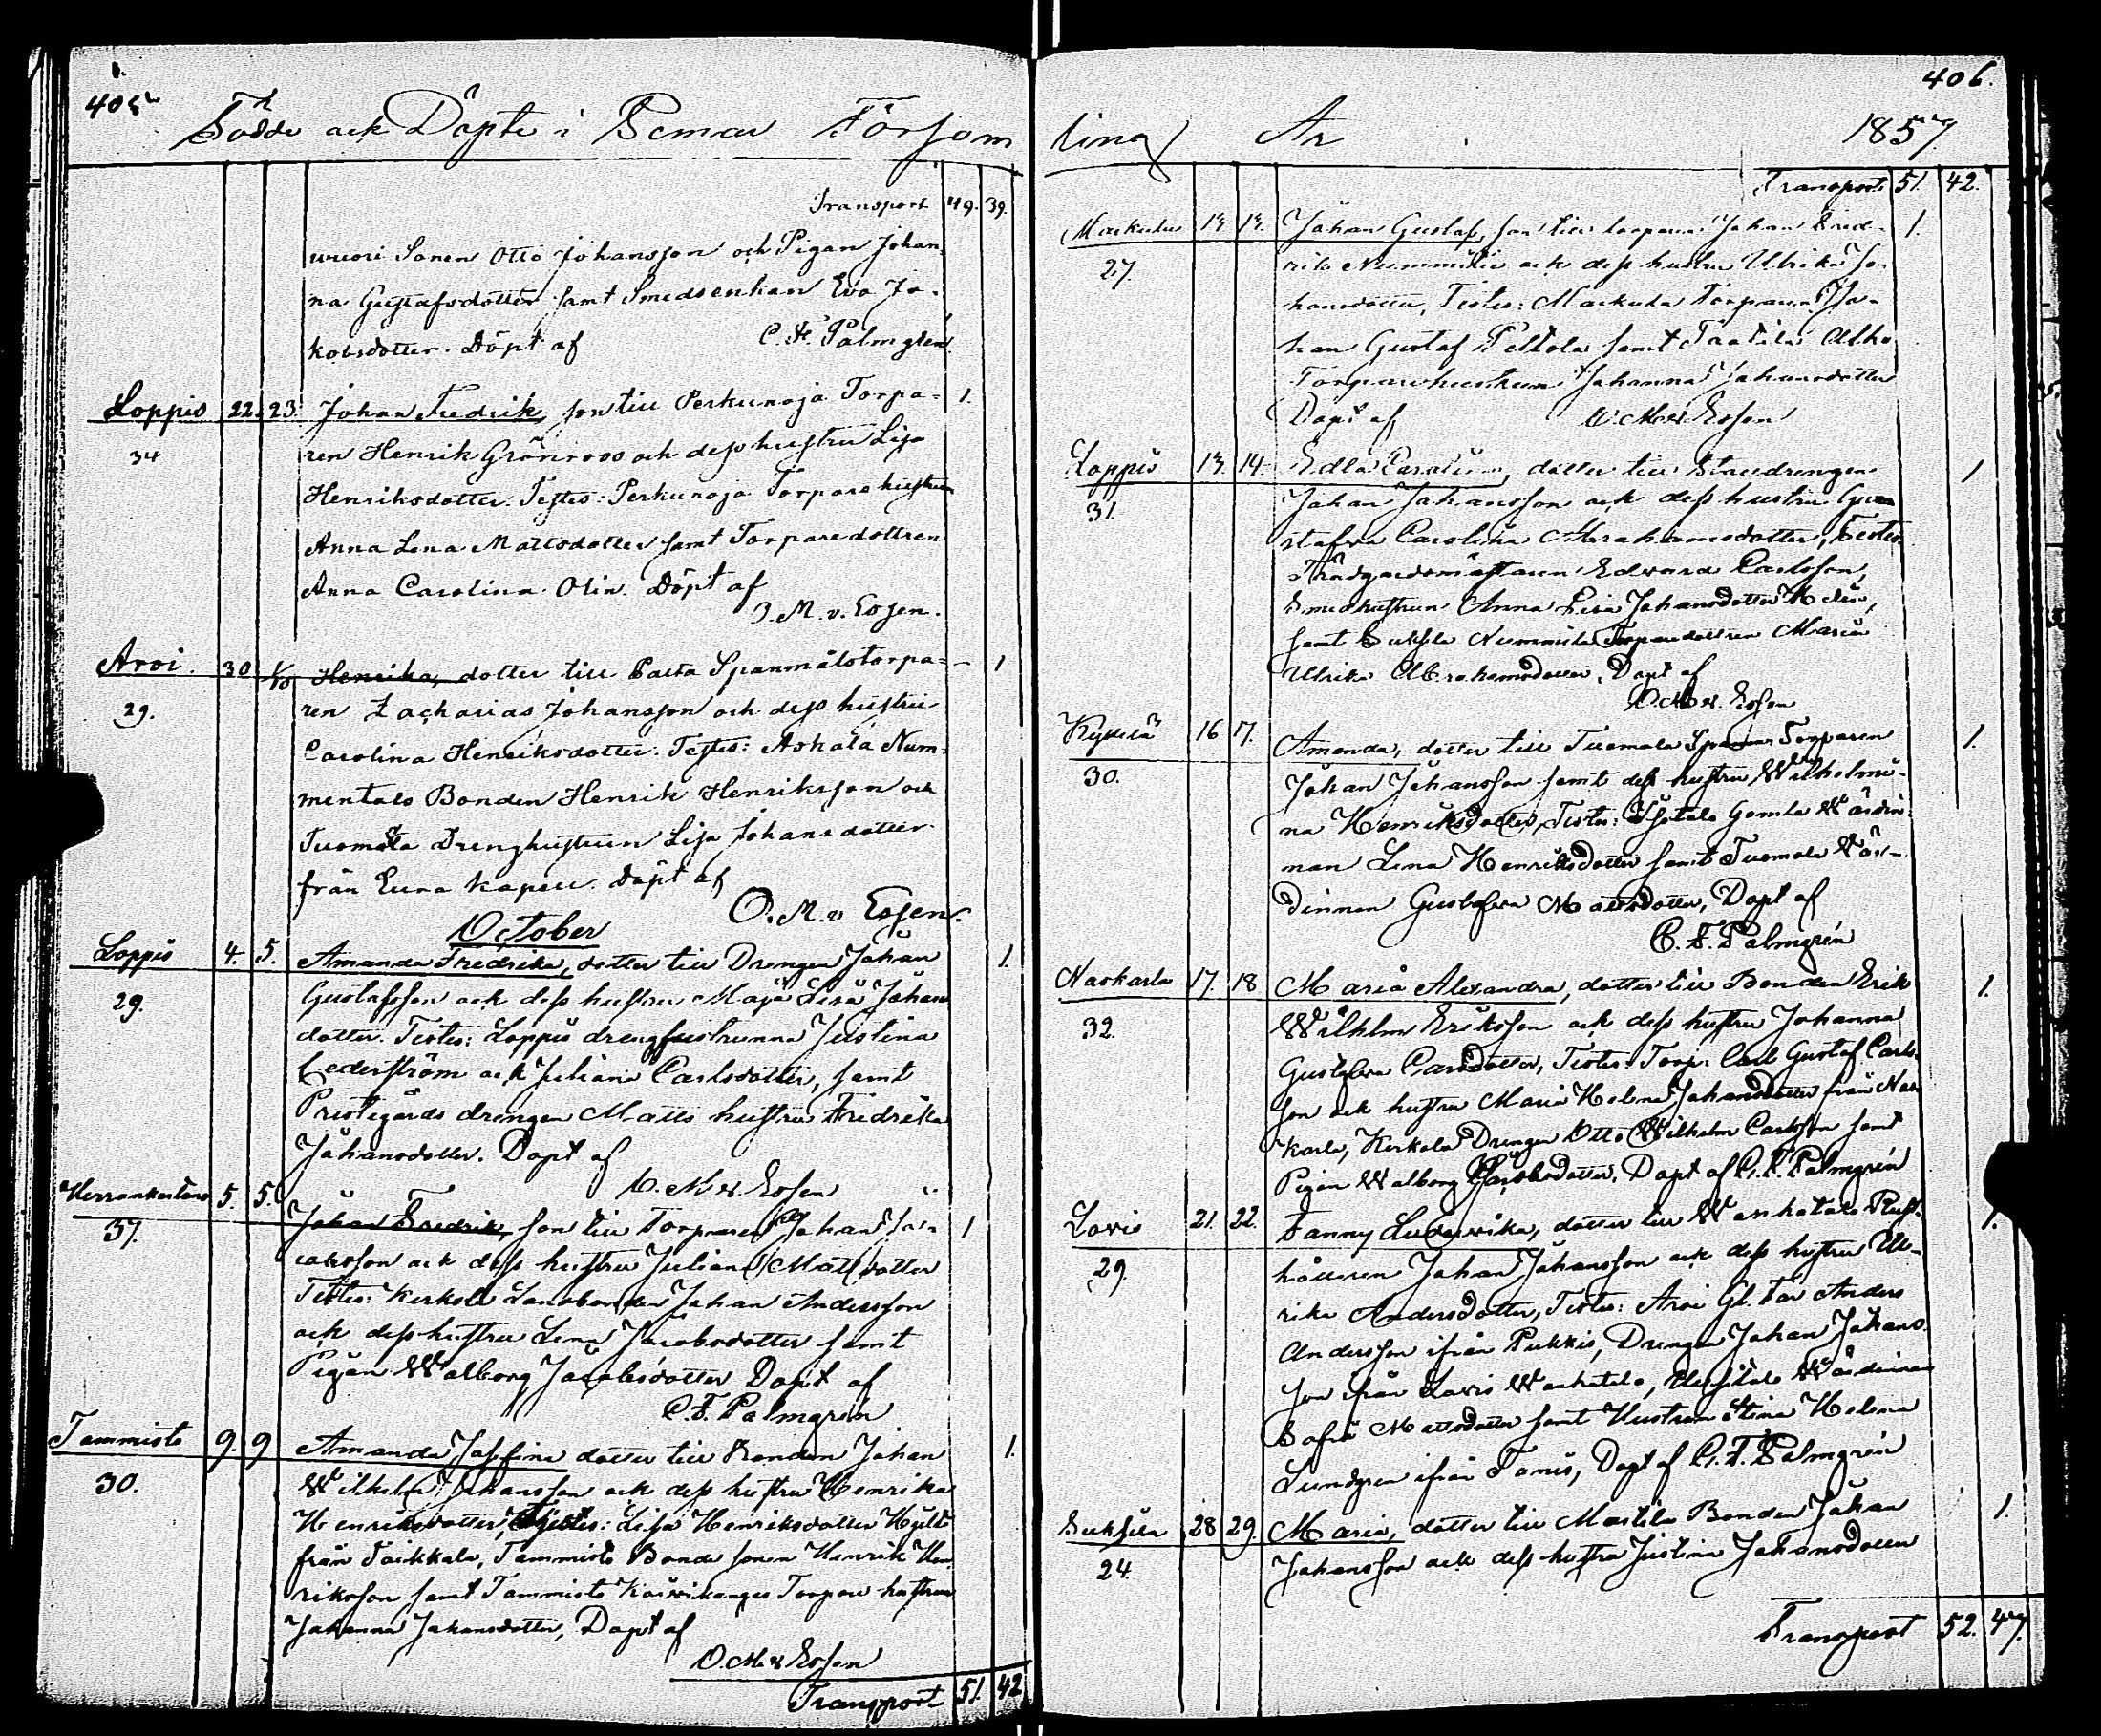 405
Födde och Döpte i Pemar Försam
Transport 49. 39.
wuori Sonen Otto Johansson och Pigan Johan-
na Gustafsdotter samt Smedsenkan Eva Ja-
kobsdotter. Döpt af C. F. Palmgren.
Loppis 22. 23. Johan Fredrik, son till Perkunoja Torpa- 1.
34 ren Henrik Grönroos och dess hustru Lisa
Henriksdotter. Testes: Perkunoja Torpare hustrun
Anna Lena Mattsdotter samt Torparedottren
Anna Carolina Olin. Döpt af
O. M. v. Essen.
Aroi. 30 1/10 Henrika, dotter till Spanmålstorpa- 1
29. ren Zacharias Johansson och dess hustru
Carolina Henriksdotter. Testes: Askala Num-
mentalo Bonden Henrik Henriksson och
Tuomola Drenghustrun Lisa Johansdotter
från Eura Kapell. Döpt af
O. M. v Essen.
October
Loppis 4. 5. Amanda Fredrika, dotter till Drengen Johan 1.
29. Gustafsson och dess hustru Maja Lisa Johans
dotter. Testes: Loppis drenghustrunna Justina
Cederström och Juliana Carlsdotter, samt
Prestgårds drengen Matts hustru Fredrika
Johansdotter. Döpt af
O. M v. Essen
5. 5. Johan Fredrik, son till Torparen Johan Ja- 1
37. cobsson och dess hustru Juliana Mattsdotter
Testes: Kerkola Landbonden Johan Andersson
och dess hustru Lena Jacobsdotter samt
Pigan Walborg Jacobsdotter Döpt af
C. F. Palmgrén
Tammisto 9. 9 Amanda Josefina dotter till Bonden Johan 1.
30. Wilhelm Johansson och dess hustru Henrika
Henriksdotter, Testes: Lisa Henriksdotter
från Taikkala, Tammisto Bonde sonen Henrik Hen
riksson samt Tammisto Torpare hustrun
Johanna Johansdotter, Döpt af
O. M v Essen
Transport 51. 42
406.
ling År 1857.
Transport 51. 42.
Markula 13 13. Johan Gustaf, son till torparen Johan Fred- 1.
27. rik Nummila och dess hustru Ulrika Jo-
hansdotter, Testes: Markula Torparen Jo-
han Gustaf Peltola samt Alho
Torparehustrun Johanna Johansdotter
Döpt af O. M v. Essen
Loppis 13. 14. Edla Carolina, dotter till Staldrengen 1
31. Johan Johansson och dess hustru Gu
stafva Carolina Abrahamsdotter, Testes
Trädgårdsmästaren Edvard Carlsson,
Smedhustrun Anna Lisa Johansdotter
samt Suksela Nummila Torparedottren Maria
Ulrika Abrahamsdotter. Döpt af
O. M v. Essen
Kyttilä 16 17. Amanda, dotter till Tuomala Torparen 1.
30. Johan Johansson samt dess hustru Wilhelmi-
na Henriksdotter, Testes: Isotalo Gamla Wärdin-
nan Lena Henriksdotter samt Tuomola Wär-
dinnan Gustafva Mattsdotter, Döpt af
C. F. Palmgrén
Naskarla 17. 18 Maria Alexandra, dotter till Bonden Erik 1.
32. Wilhelm Eriksson och dess hustru Johanna
Gustafva Carlsdotter, Testes: Torp. Carl Gustaf Carls-
son och hustru Maria Helena Johansdotter från Nas
karla, Kerkola Drengen Otto Wilhelm Carlsson samt
Pigan Walborg Jacobsdotter. Döpt af C. F. Palmgrén
Lovis 21. 22. Fanny Ludovika, dotter till Wanhatalo Rust- 1.
29. hållaren Johan Johansson och dess hustru Ul-
rika Andersdotter, Testes: Aroi Gl. Far Anders
Andersson ifrån Pukkis, Drengen Johan Johans-
son ifrån Lovis Wanhatalo, Wärdinnan
Sofia Mattsdotter samt Hustrun Stina Helena
Lundgren ifrån Tanis, Döpt af C. F. Palmgrén
Suksela 28 29. Maria, dotter till Mattila Bonden Johan 1.
24. Johansson och dess hustru Justina Johansdotter
Transport 52. 47.